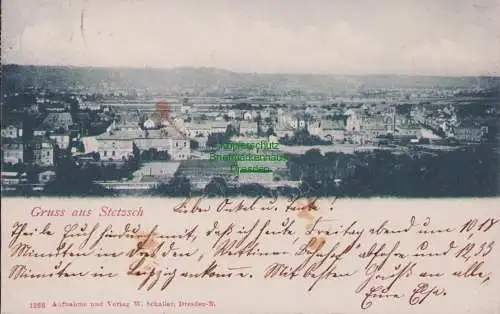 Kopierschutz
Briefmarkenhaus
Dresden
Gruss aus Stetzsch
Lieber Onkel u. Tante!
Theile Euch hierdurch mit, daß ich heute Freitag abend um 10.18
Minuten in Dresden, Wettiner Bahnhof abfahre und 12.33
Minuten in Leipzig ankomme. Mit besten Grüße an alle,
Eure
1266 Aufnahme und Verlag W. Schaller, Dresden-N.